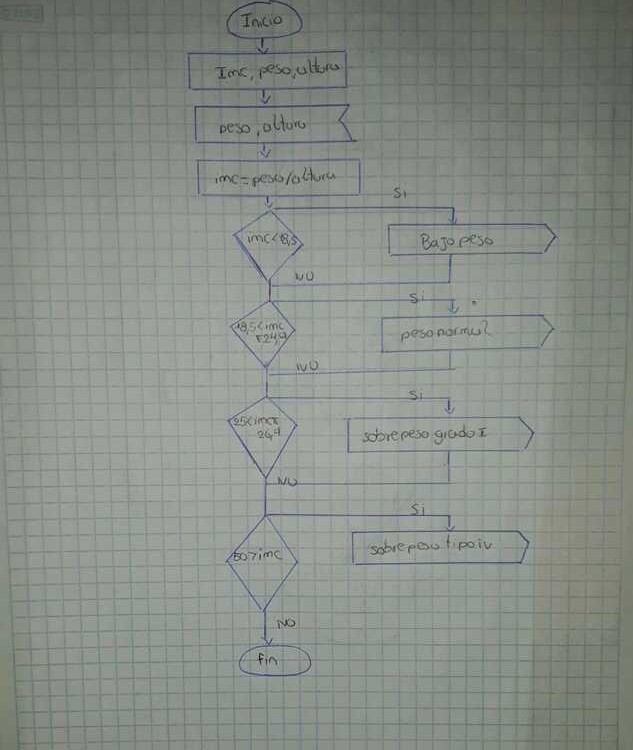 Inicio
Imc, peso, altura
peso, altura
imc=peso/altura
Si
imc<18,5
Bajo peso
NO
Si
18,5<imc
<24,9
peso normal
NO
Si
25<imc<
29,9
sobrepeso grado I
NO
Si
50>imc
sobrepeso tipo iv
NO
fin